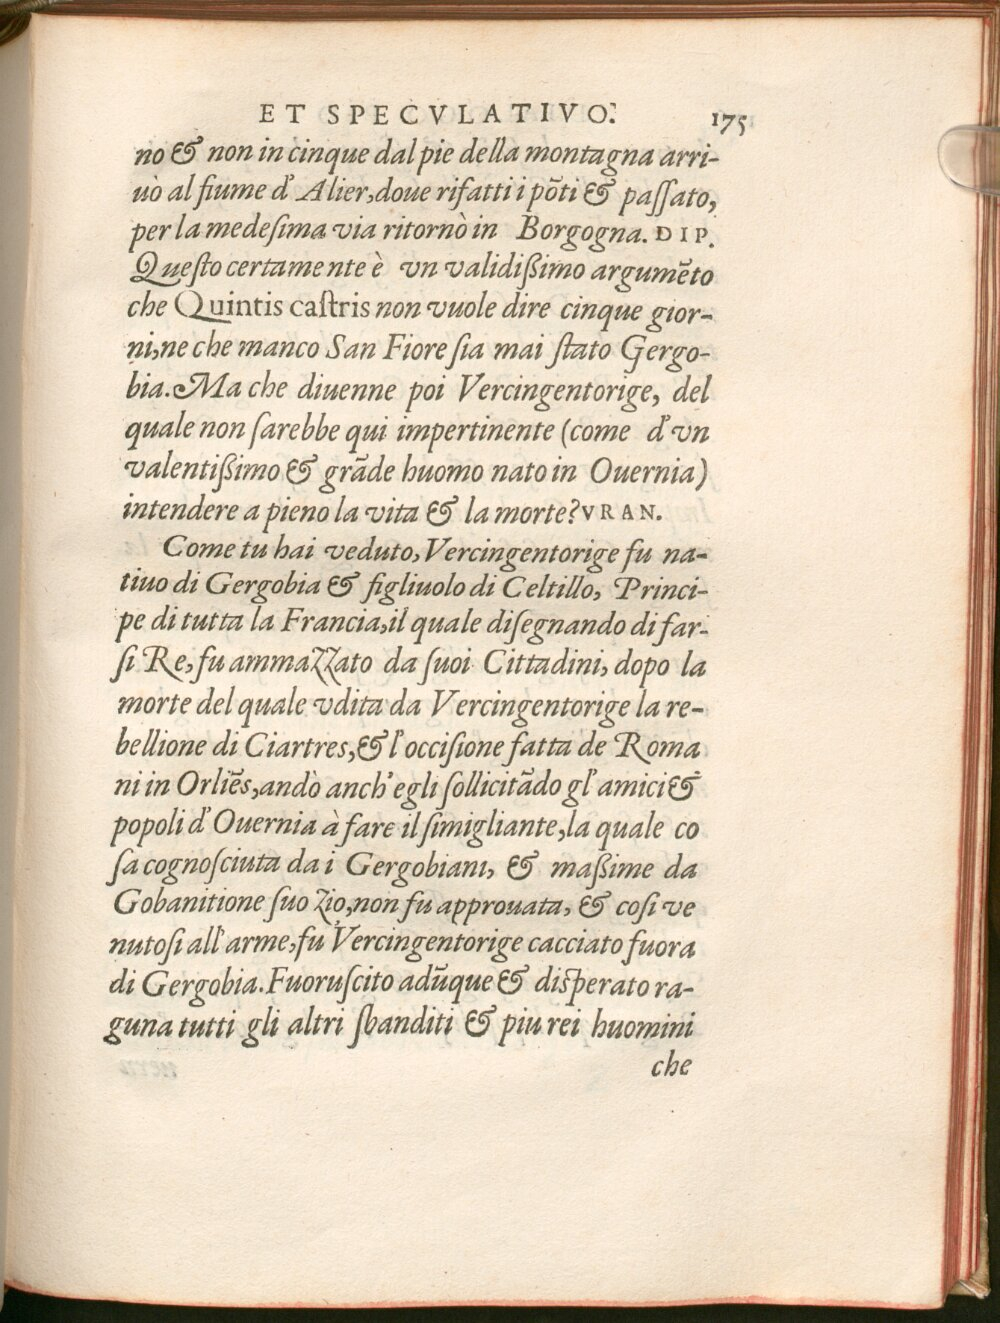 ET SPECVLATIVO. 175
no & non in cinque dal pie della montagna arri-
uò al fiume d'Alier, doue rifatti i põti & paſſato,
per la medeſima via ritornò in Borgogna. DIP.
Queſto certamente è vn validiſſimo argumẽto
che Quintis caſtris non vuole dire cinque gior-
ni, ne che manco San Fiore ſia mai ſtato Gergo-
bia. Ma che diuenne poi Vercingentorige, del
quale non ſarebbe qui impertinente (come d'vn
valentiſſimo & grãde huomo nato in Ouernia)
intendere a pieno la vita & la morte? VRAN.
Come tu hai veduto, Vercingentorige fu na-
tiuo di Gergobia & figliuolo di Celtillo, Princi-
pe di tutta la Francia, il quale diſegnando di far-
ſi Re, fu ammazzato da ſuoi Cittadini, dopo la
morte del quale vdita da Vercingentorige la re-
bellione di Ciartres, & l'occiſione fatta de Roma
ni in Orliẽs, andò anch'egli ſollicitãdo gl'amici &
popoli d'Ouernia à fare il ſimigliante, la quale co
ſa cognoſciuta da i Gergobiani, & maſſime da
Gobanitione ſuo zio, non fu approuata, & coſi ve
nutoſi all'arme, fu Vercingentorige cacciato fuora
di Gergobia. Fuoruſcito adũque & diſperato ra-
guna tutti gli altri ſbanditi & piu rei huomini
che